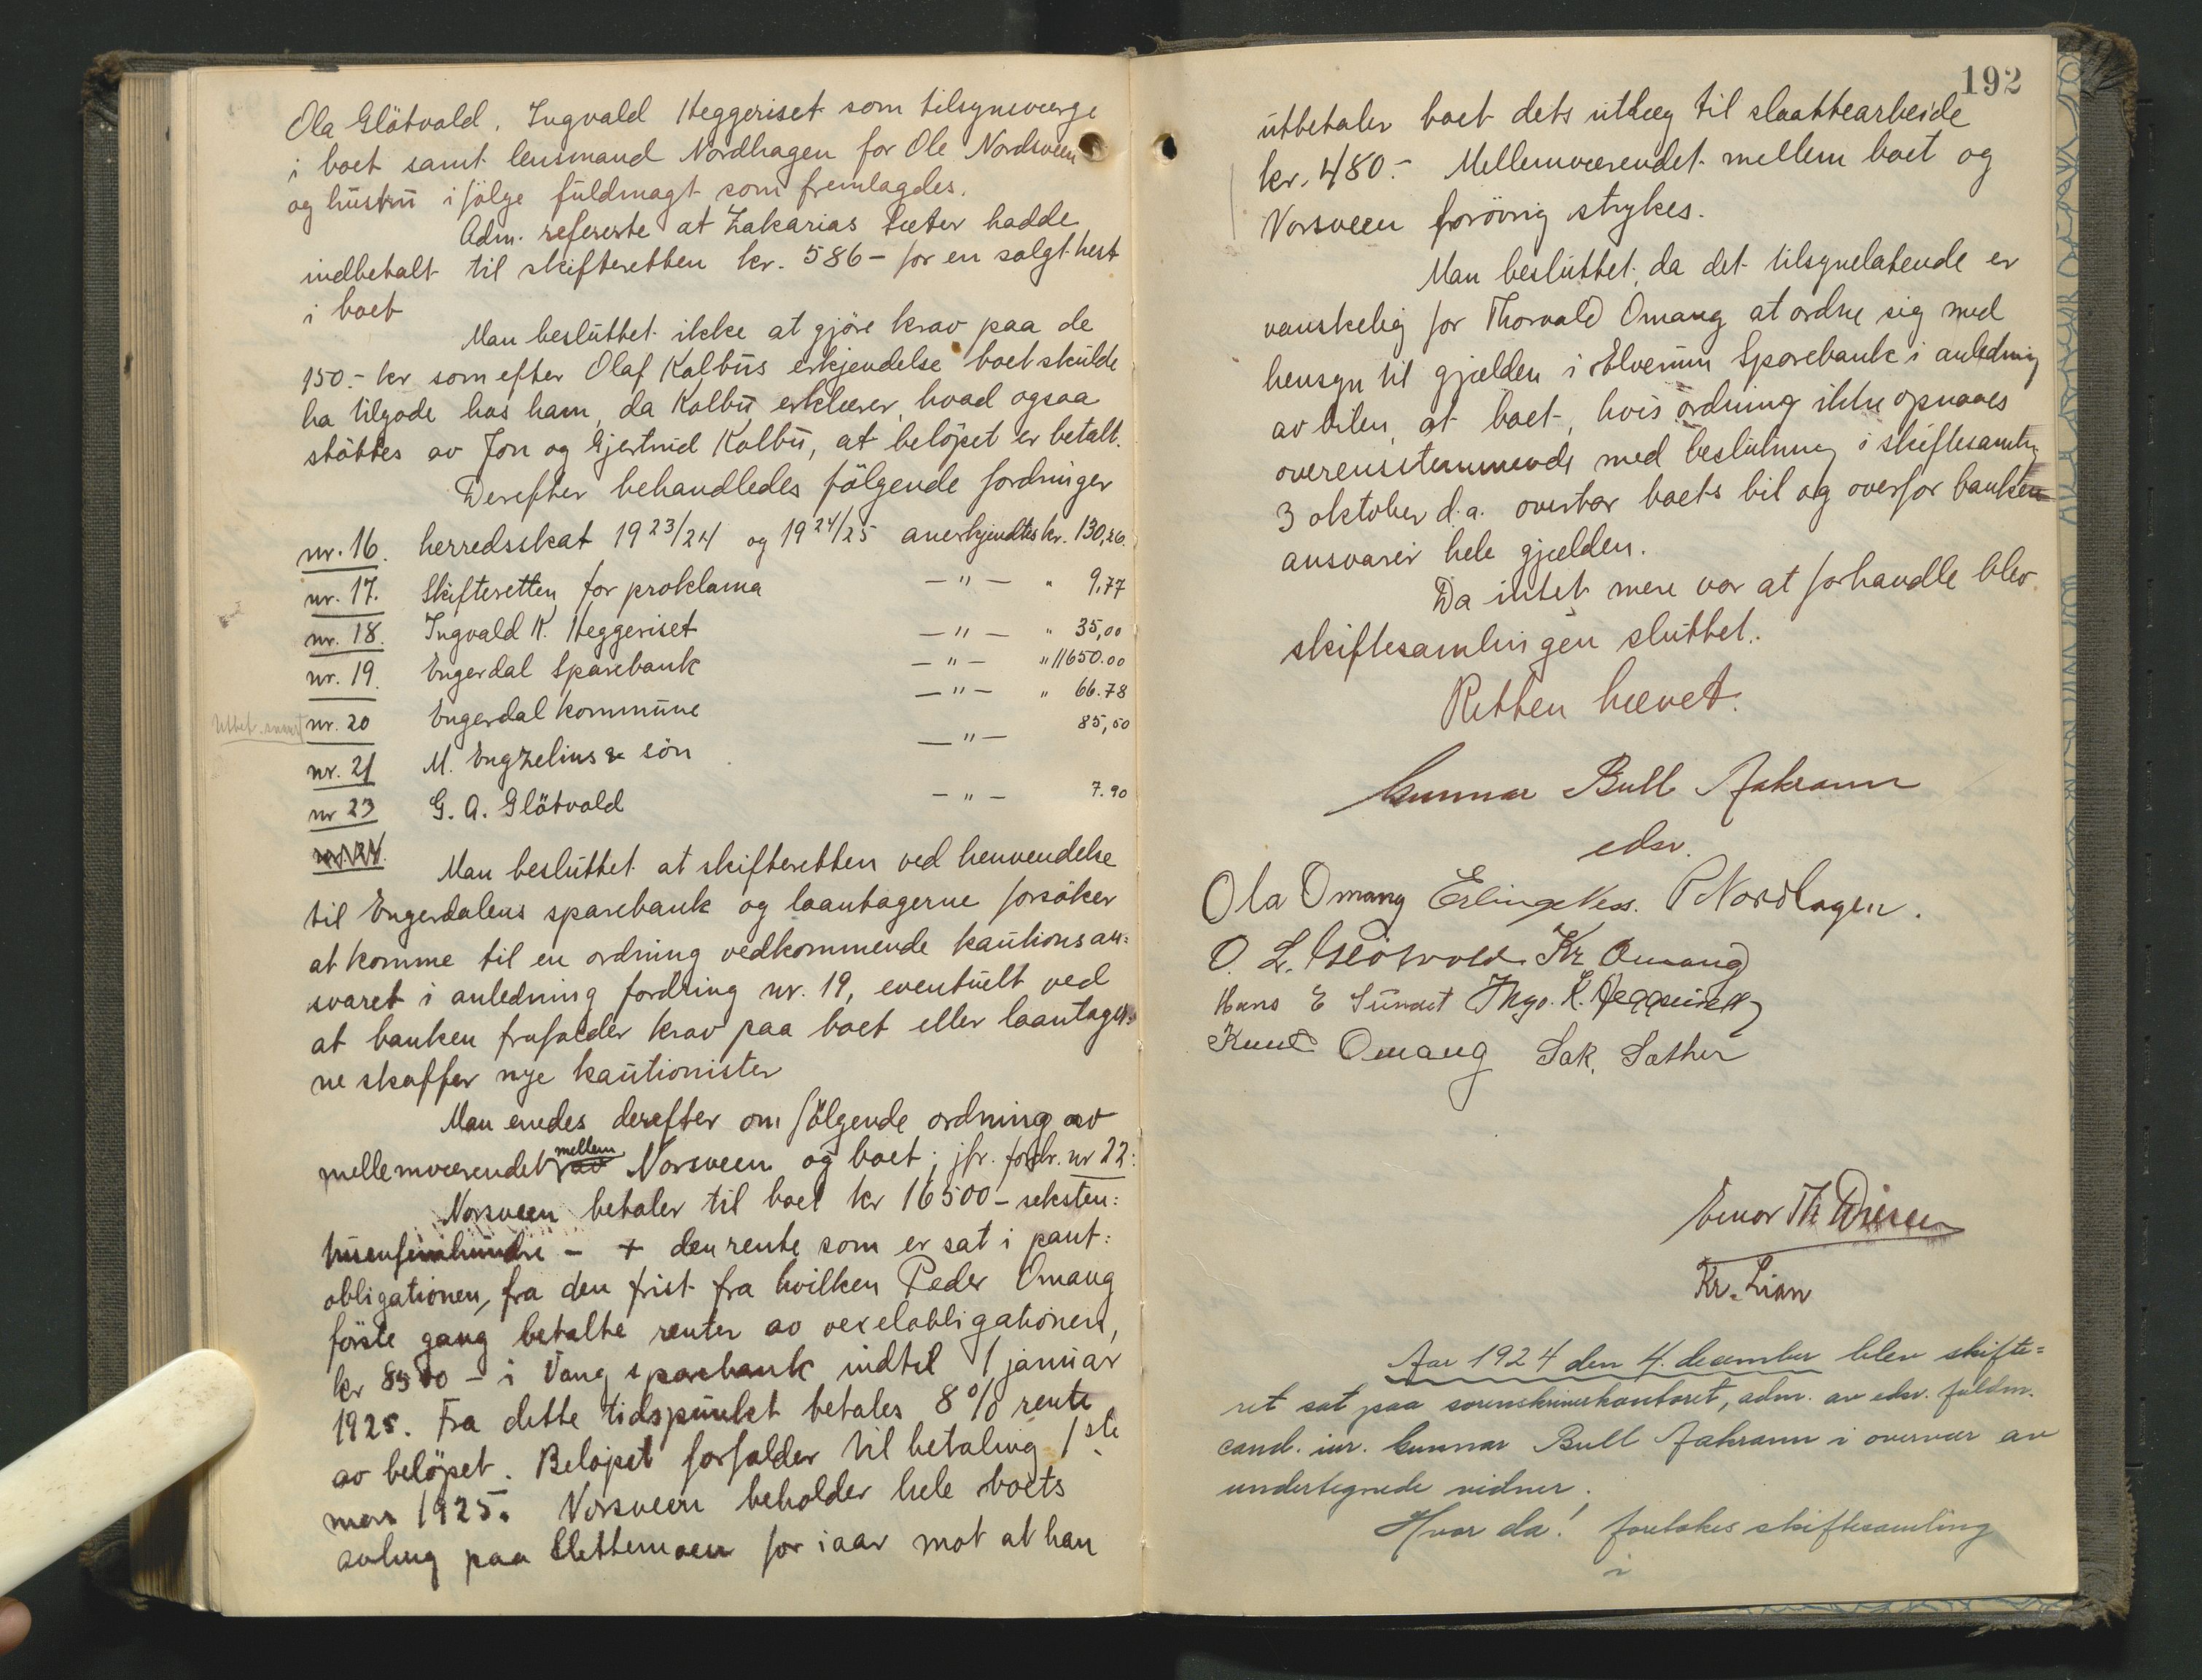 Ola Glötvold, Ingvald Heggeriset som tilsynsværge
i boet samt lensmand Nordhagen for Ole Nordsveen
og hustru ifölge fuldmagt som fremlagdes.
Adm. refererte at Zakarias Sæter hadde
indbetalt til skifteretten kr. 586- for en solgt hest
i boet
Man besluttet ikke at gjöre krav paa de
150.- kr som efter Olaf Kolbus erkjendelse boet skulde
ha tilgode hos ham, da Kolbu erklærer, hvad ogsaa
stöttes av Jon og Gjertrud Kolbu, at belöpet er betalt.
Derefter behandledes fölgende fordringer
nr. 16. herredsskat 1923/24 og 1924/25 anerkjendtes kr. 130,26.
nr. 17. Skifteretten for proklama — " — " 9,77
nr. 18. Ingvald K. Heggeriset — " — " 35,00
nr. 19. Engerdal Sparebank — " — " 11650.00
nr. 20 Engerdal kommune — " — " 66.78
nr. 21 M. Engzelius & sön — " — 85,50
nr 23 G. A. Glötvold — " — 7.90
Man besluttet at skifteretten ved henvendelse
til Engerdalens sparebank og laantagerne forsöker
at komme til en ordning vedkommende kautionsan=
svaret i anledning fordring nr. 19, eventuelt ved
at banken frafalder krav paa boet eller laantager=
ne skaffer nye kautionister
Man enedes derefter om fölgende ordning av
mellemværendet av mellem Norsveen og boet; jfr. fordr. nr 22:
Norsveen betaler til boet kr 16500 - seksten:
tusenfemhundre - + den rente som er sat i pant:
obligationen, fra den frist fra hvilken Peder Omang
förste gang betalte renter av vexelobligationen,
kr 8500 - i Vang sparebank indtil 1 januar
1925. Fra dette tidspunkt betales 8% rente
av belöpet. Belöpet forfalder til betaling 1ste
mars 1925. Norsveen beholder hele boets
avling paa Slettemoen for iaar mot at han
192
utbetaler boet dets utlæg til slaattearbeide
kr. 480.- Mellemværendet mellem boet og
Norsveen forövrig strykes.
Man besluttet, da det tilsynelatende er
vanskelig for Thorvald Omang at ordne sig med
hensyn til gjælden i Elverum Sparebank i anledning
av bilen, at boet, hvis ordning ikke opnaaes
overensstemmende med beslutning i skiftesamling
3 oktober d.a. overtar boets bil og overfor banken
ansvarer hele gjælden.
Da intet mere var at forhandle blev
skiftesamlingen sluttet.
Retten hævet.
Gunnar Bull Aakrann
edsv.
Ola Omang Erling Næss. P Nordhagen.
O. L. Glötvold Kr Omang
Hans E Sundet Ingv. K. Heggeriset
Knut Omang Sak. Sæther
Einar Th
Kr. Lian
Aar 1924 den 4. december blev skifte=
ret sat paa sorenskriverkontoret, adm. av edsv. fuldm.
cand. jur. Gunnar Bull Aakrann i overvær av
undertegnede vidner.
Hvor da! foretokes skiftesamling
i